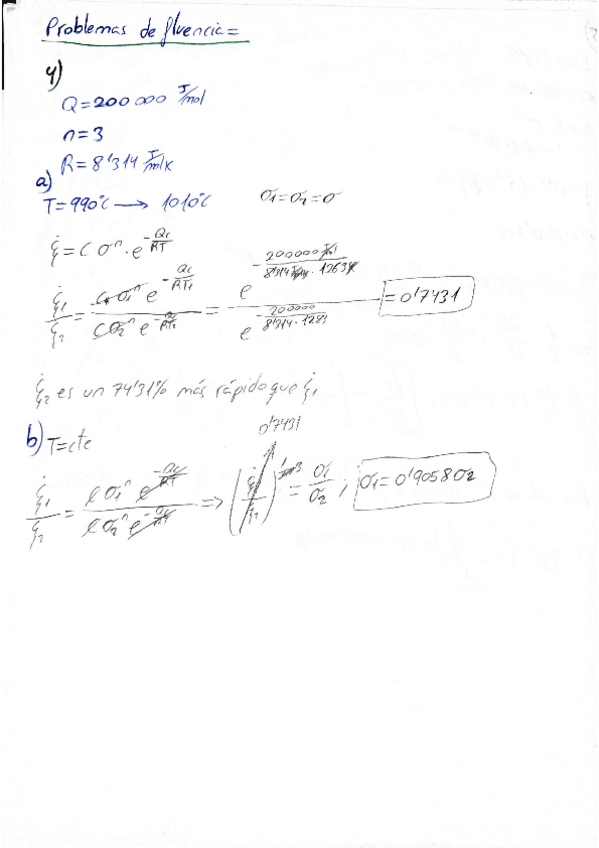 Problemas de fluencia=
4)
Q=200 000 J/mol
n=3
R=8'314 J/molK
a)
T=990°C → 1010°C   σ1=σ2=σ
ξ̇=C σ^n · e^(-Qc/RT)
ξ̇1/ξ̇2 = (C σ1^n e^(-Qc/RT1))/(C σ2^n e^(-Qc/RT2)) = (e^(-200000 J/mol / 8'314 J/molK · 1263K))/(e^(-200000 / 8'314 · 1283)) = 0'7431
ξ̇2 es un 74'31% más rápido que ξ̇1
b) T=cte
0'7431
ξ̇1/ξ̇2 = (C σ1^n e^(-Qc/RT))/(C σ2^n e^(-Qc/RT)) => (ξ̇1/ξ̇2)^(1/3) = σ1/σ2 ; σ1=0'9058σ2